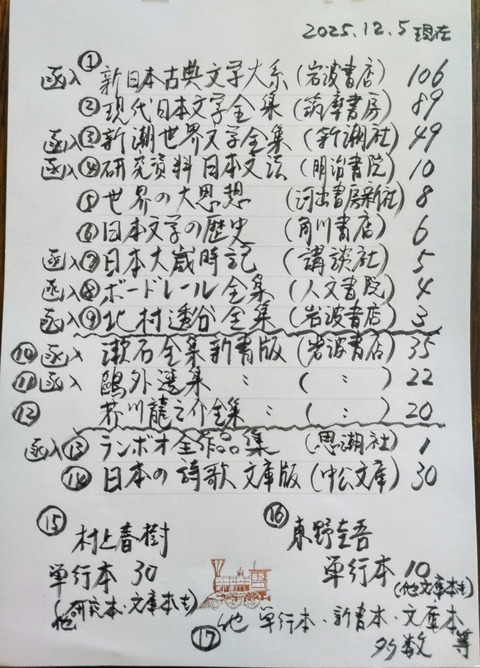 2025.12.5現在
函入①新日本古典文学大系(岩波書店) 106
②現代日本文学全集(筑摩書房) 89
函入③新潮世界文学全集(新潮社) 49
函入④研究資料日本文法(明治書院) 10
⑤世界の大思想(河出書房新社) 8
⑥日本文学の歴史(角川書店) 6
函入⑦日本大歳時記(講談社) 5
函入⑧ボードレール全集(人文書院) 4
函入⑨北村透谷全集(岩波書店) 3
⑩函入 漱石全集新書版(岩波書店) 35
⑪函入 鴎外選集 〃 (〃) 22
⑫ 芥川龍之介全集 〃 (〃) 20
函入⑬ランボオ全作品集(思潮社) 1
⑭日本の詩歌 文庫版(中公文庫) 30
⑮村上春樹
単行本 30
他研究本・文庫本も
⑯東野圭吾
単行本 10
(他文庫本も)
⑰他 単行本・新書本・文庫本等
多数